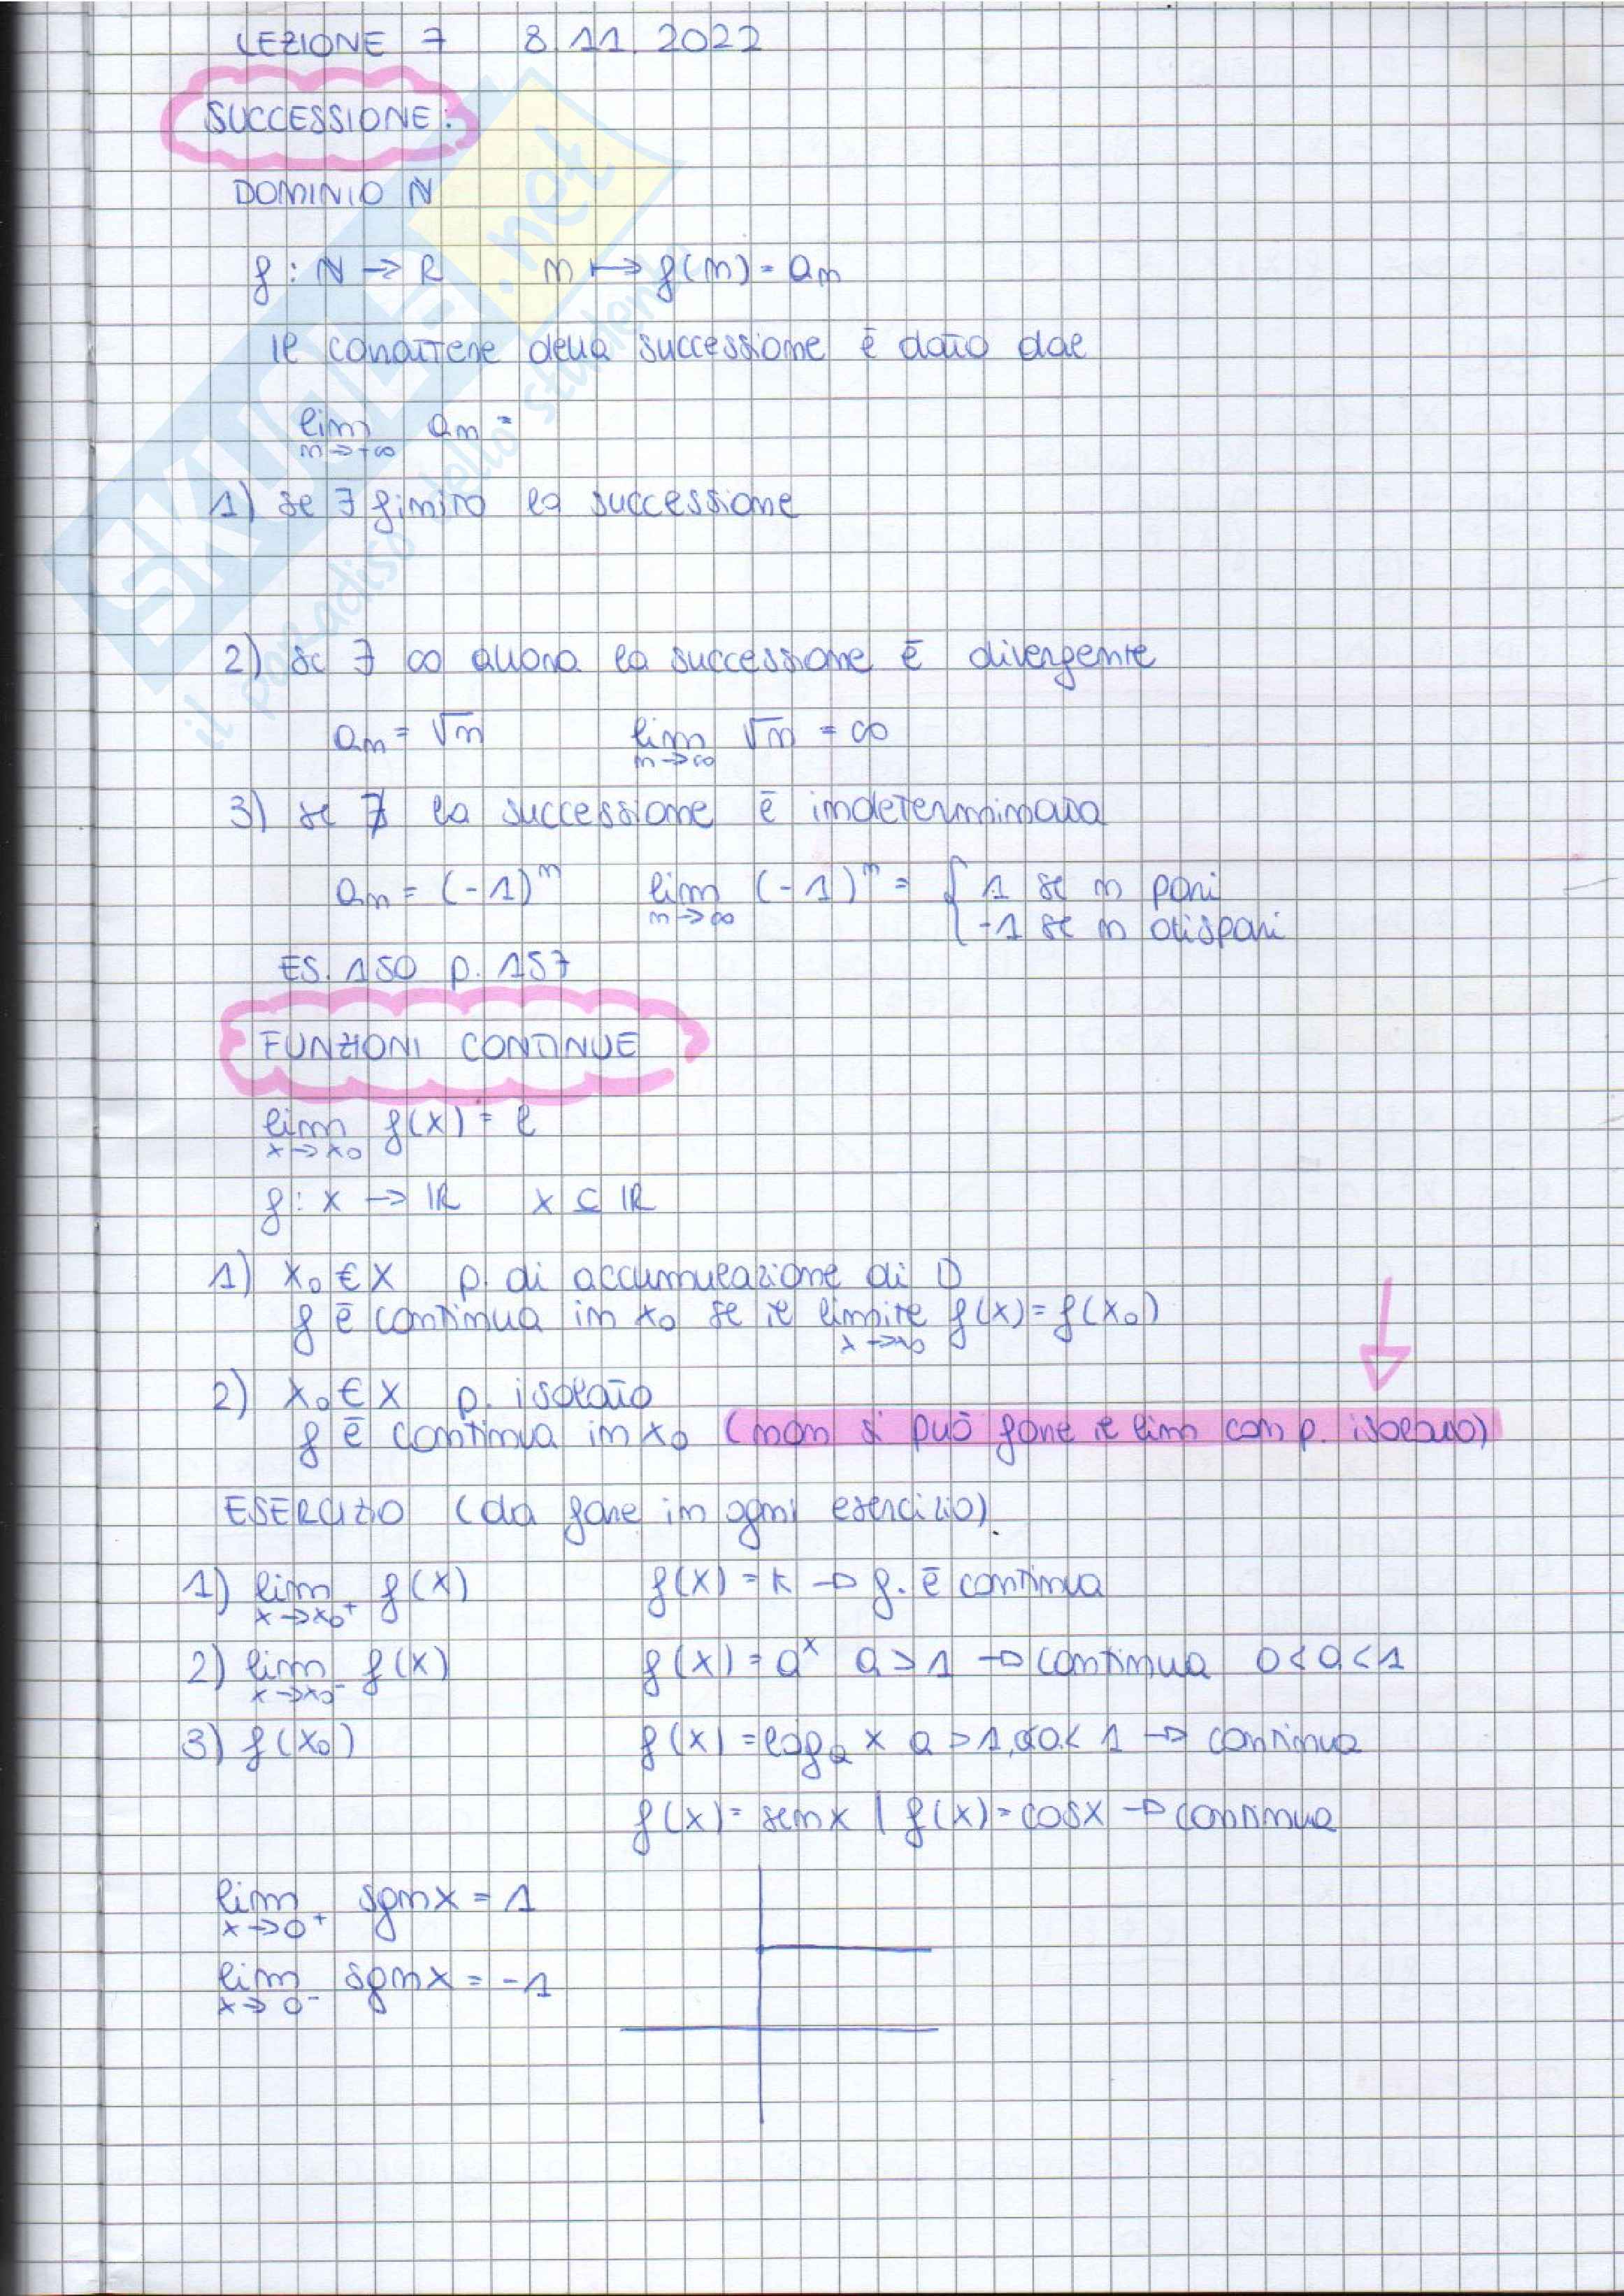 LEZIONE 7 8.11.2022
SUCCESSIONE:
DOMINIO N
f: N → R n ↦ f(n) = an
il carattere della successione è dato dal
lim n→+∞ an =
1) se ∃ finito la successione
2) se ∃ ∞ allora la successione è divergente
an = √n lim n→∞ √n = ∞
3) se ∄ la successione è indeterminata
an = (-1)^n lim n→∞ (-1)^n = { 1 se n pari
-1 se n dispari
ES. 150 p. 157
FUNZIONI CONTINUE
lim x→x0 f(x) = l
f: X → ℝ X ⊆ ℝ
1) x0 ∈ X p. di accumulazione di D
f è continua in x0 se il limite x→x0 f(x) = f(x0)
2) x0 ∈ X p. isolato
f è continua in x0 (non si può fare il lim con p. isolato)
ESERCIZIO (da fare in ogni esercizio).
1) lim x→x0+ f(x) f(x) = k → f. è continua
2) lim x→x0- f(x) f(x) = a^x a > 1 → continua 0 < a < 1
3) f(x0) f(x) = log a x a > 1, 0<a< 1 → continua
f(x) = sen x | f(x) = cos x → continua
lim x→0+ sgn x = 1
lim x→0- sgn x = -1
SKUOLA.net
il paradiso dello studente